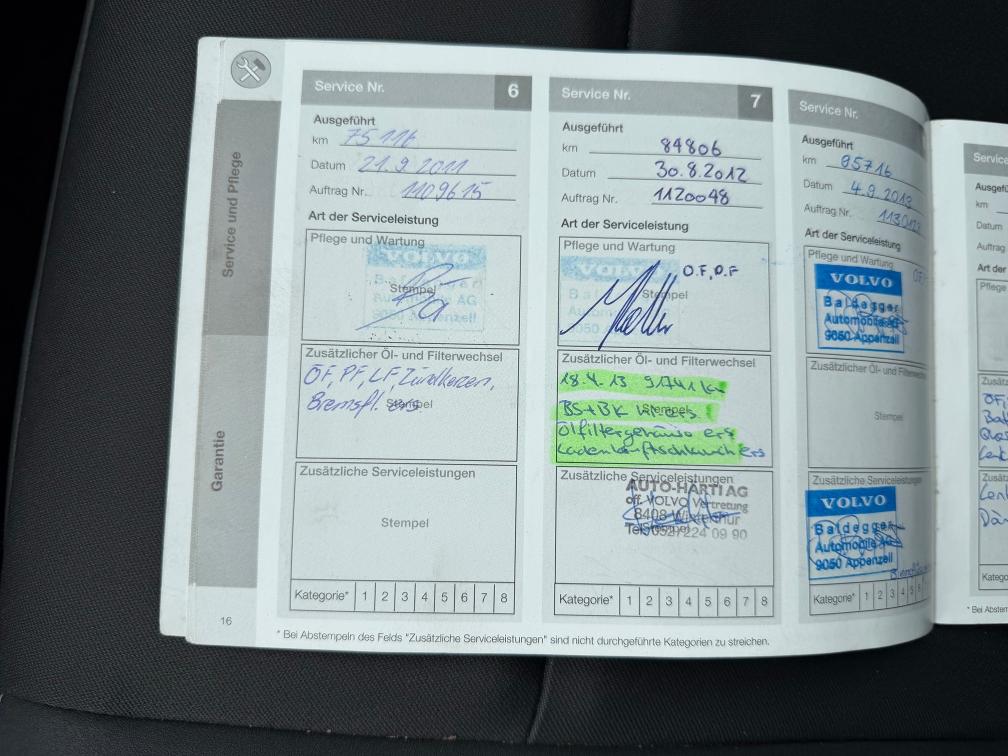 Service und Pflege
Garantie
16
Service Nr. 6
Ausgeführt
km 75116
Datum 21.9.2011
Auftrag Nr. 1109615
Art der Serviceleistung
Pflege und Wartung
VOLVO
Stempel
Automobile AG
9050 Appenzell
Zusätzlicher Öl- und Filterwechsel
ÖF, PF, LF, Zündkerzen,
Bremsfl. ers
Stempel
Zusätzliche Serviceleistungen
Stempel
Kategorie* 1 2 3 4 5 6 7 8
Service Nr. 7
Ausgeführt
km 84806
Datum 30.8.2012
Auftrag Nr. 1120048
Art der Serviceleistung
Pflege und Wartung
VOLVO
Ö.F, P.F
Stempel
9050 Appenzell
Zusätzlicher Öl- und Filterwechsel
18.4.13 91741 km
BS+BK
Stempel
Ölfiltergehäuse ers
Ladenluftschlauch ers
Zusätzliche Serviceleistungen
AUTO-HÄRTI AG
off. VOLVO Vertretung
8408 Winterthur
Tel. 052/224 09 90
Stempel
Kategorie* 1 2 3 4 5 6 7 8
Service Nr.
Ausgeführt
km 95716
Datum 4.9.2013
Auftrag Nr.
Art der Serviceleistung
Pflege und Wartung
VOLVO
Baldegger
Automobile AG
9050 Appenzell
Zusätzlicher Öl- und Filterwechsel
Stempel
Zusätzliche Serviceleistungen
VOLVO
Baldegger
Automobile AG
9050 Appenzell
Kategorie* 1 2 3 4 5 6
* Bei Abstempeln des Felds "Zusätzliche Serviceleistungen" sind nicht durchgeführte Kategorien zu streichen.
Service
km
Datum
Auftrag
Art der
Pflege